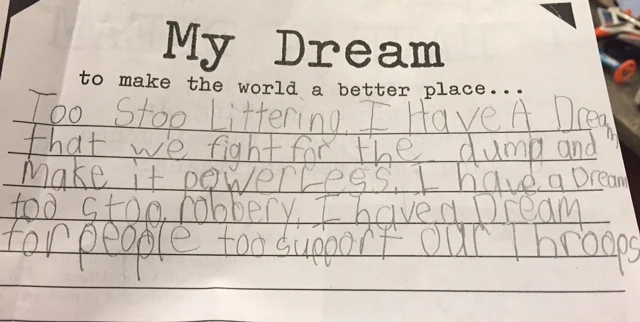 My Dream
to make the world a better place...
Too Stop Littering. I Have A Dream
that we fight for the dump and
Make it powerLess. I have a Dream
too stop robbery. I have a Dream
for people too support our Throops